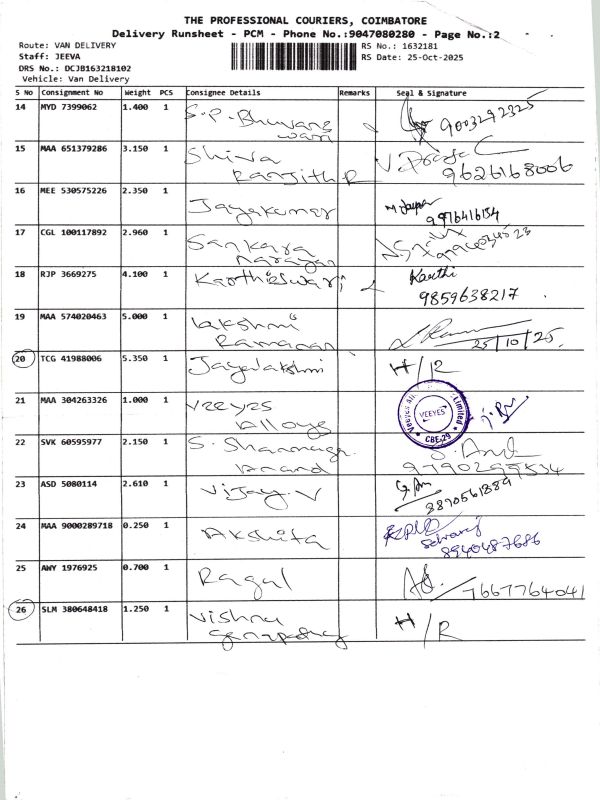 THE PROFESSIONAL COURIERS, COIMBATORE
Delivery Runsheet - PCM - Phone No.:9047080280 - Page No.:2
Route: VAN DELIVERY
RS No.: 1632181
Staff: JEEVA
RS Date: 25-Oct-2025
DRS No.: DCJB163218102
Vehicle: Van Delivery
S No Consignment No Weight PCS Consignee Details Remarks Seal & Signature
14 MYD 7399062 1.400 1 S.P. Bhuvanes
wari 9003292325
15 MAA 651379286 3.150 1 Shiva
Ranjith R 9626168006
16 MEE 530575226 2.350 1 Jayakumar
9976416154
17 CGL 100117892 2.960 1 Sankara
narayan
18 RJP 3669275 4.100 1 Karthieswari Karthi
9859638217
19 MAA 574020463 5.000 1 Lakshmi
Ramanan 25/10/25
20 TCG 41988006 5.350 1 Jayalakshmi H/R
21 MAA 304263326 1.000 1 Veeyes
Alloys VEEYES Limited CBE-29
22 SVK 60595977 2.150 1 S. Shanmuga
Anand 9790299534
23 ASD 5080114 2.610 1 Vijay. V
8870561889
24 MAA 9000289718 0.250 1 Akshita
8940487686
25 AWY 1976925 0.700 1 Ragul 7667764041
26 SLM 380648418 1.250 1 Vishnu
Ganapathy H/R